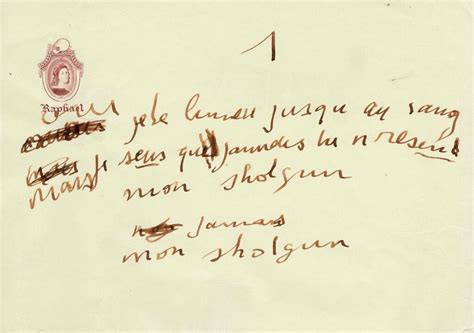 1
Raphael
oui je te jusqu au sang
mais je seus que tu n resens
mon shotgun
jamais
mon shotgun